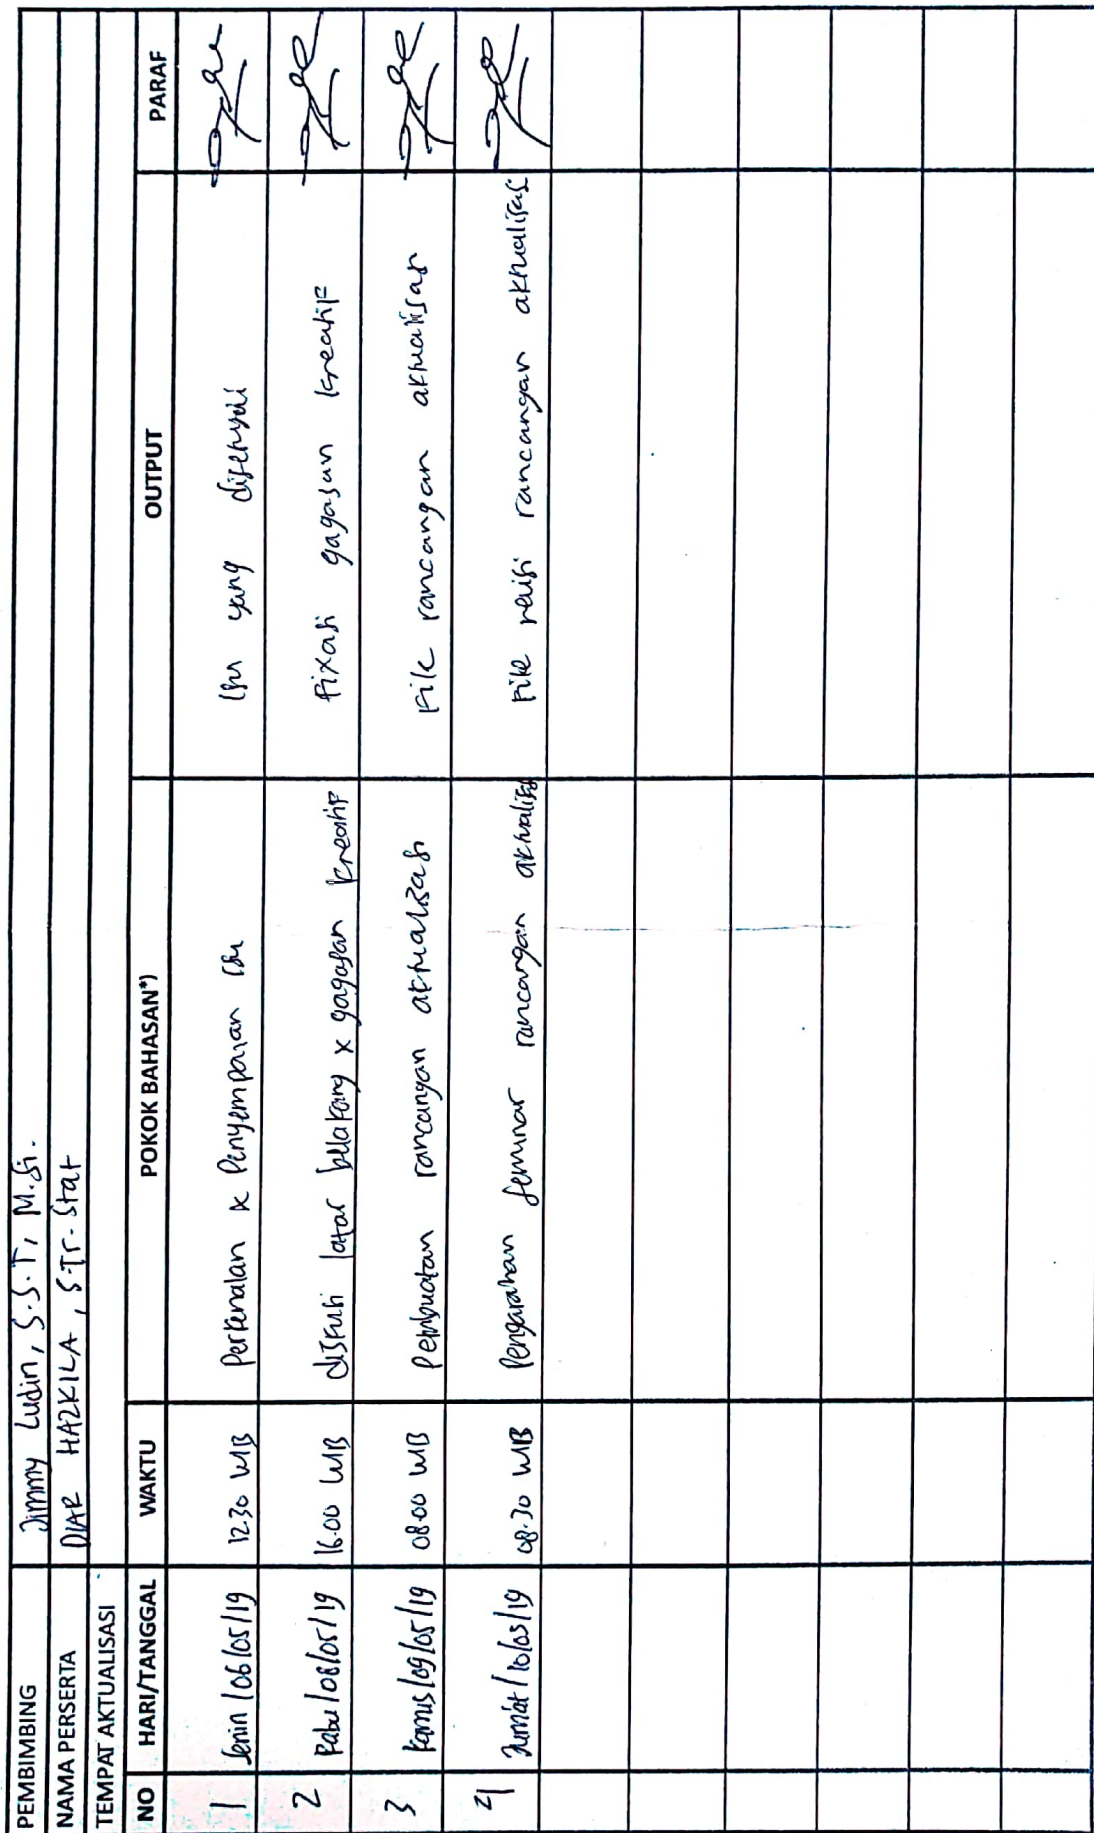 PEMBIMBING Jimmy Ludin, S.S.T, M.Si.
NAMA PERSERTA DIAR HAZKILA, S.Tr.Stat
TEMPAT AKTUALISASI
NO HARI/TANGGAL WAKTU POKOK BAHASAN*) OUTPUT PARAF
1 Senin/06/05/19 12.30 WIB Perkenalan & Penyampaian Isu Isu yang disetujui
2 Rabu/08/05/19 16.00 WIB diskusi latar belakang & gagasan kreatif fixasi gagasan kreatif
3 Kamis/09/05/19 08.00 WIB Pembuatan rancangan aktualisasi File rancangan aktualisasi
4 Jumat/10/05/19 08.30 WIB Pengarahan seminar rancangan aktualisasi File revisi rancangan aktualisasi